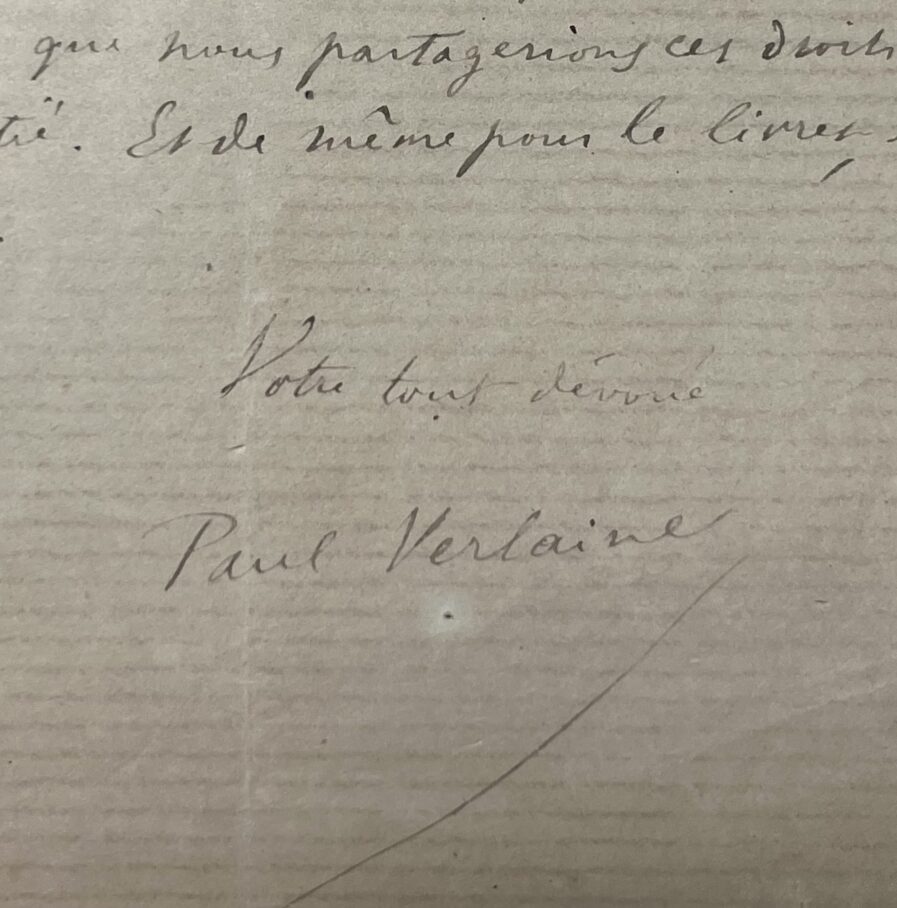 que nous partagerions ces droits
tié. Et de même pour le livret,
Votre tout dévoué
Paul Verlaine